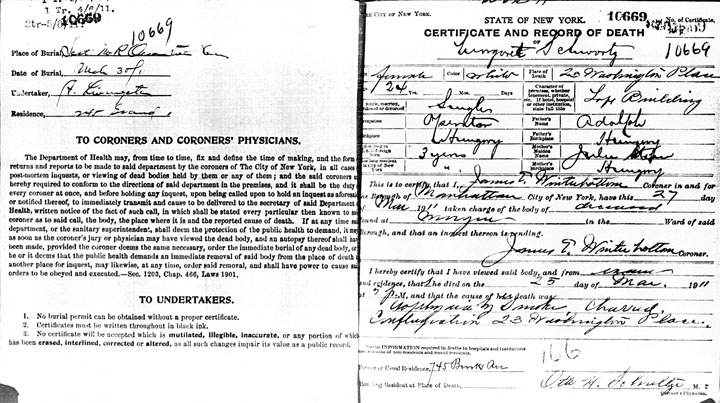 1 Tr. 4/8/11.
10669
10669
Place of Burial,
Date of Burial,
Undertaker,
Residence,
TO CORONERS AND CORONERS' PHYSICIANS.
The Department of Health may, from time to time, fix and define the time of making, and the form
returns and reports to be made to said department by the coroners of The City of New York, in all cases
post-mortem inquests, or viewing of dead bodies held by them or any of them; and the said coroners
hereby required to conform to the directions of said department in the premises, and it shall be the duty
every coroner at once, and before holding any inquest, upon being called upon to hold an inquest as aforesaid
or notified thereof, to immediately transmit and cause to be delivered to the secretary of said Department
Health, written notice of the fact of such call, in which shall be stated every particular then known to said
coroner as to said call, the body, the place where it is and the reported cause of death. If at any time said
department, or the sanitary superintendent, shall deem the protection of the public health to demand, it may
as soon as the coroner's jury or physician may have viewed the dead body, and an autopsy thereof shall have
been made, provided the coroner deems the same necessary, order the immediate burial of any dead body, or
he or it deems that the public health demands an immediate removal of said body from the place of death
another place for inquest, may likewise, at any time, order said removal, and shall have power to cause
orders to be obeyed and executed.—Sec. 1203, Chap. 466, Laws 1901.
TO UNDERTAKERS.
1. No burial permit can be obtained without a proper certificate.
2. Certificates must be written throughout in black ink.
3. No certificate will be accepted which is mutilated, illegible, inaccurate, or any portion of which
has been erased, interlined, corrected or altered, as all such changes impair its value as a public record.
THE CITY OF NEW YORK.
STATE OF NEW YORK.
10669
No. of Certificate,
CERTIFICATE AND RECORD OF DEATH
OF Margaret Schwartz
10669
female Color white Place of Death, 23 Washington Place
24 Yrs. Mos. Days
Character of premises, Top Building
Single
Operator Father's Name Adolph
Birthplace Hungary Father's Birthplace Hungary
3 years Mother's Maiden Name
Mother's Birthplace Hungary
This is to certify that I, James T. Winterbottom Coroner in and for
the Borough of Manhattan City of New York, have this 27 day
of Mar 1911 taken charge of the body of deceased
found at Morgue in the Ward of said
Borough, and that an inquest thereon is pending.
James T. Winterbottom Coroner.
I hereby certify that I have viewed said body, and from
and evidence, that she died on the 25 day of Mar. 1911
at 5 P.M., and that the cause of her death was
Asphyxia by Smoke Charred
Conflagration 23 Washington Place.
SPECIAL INFORMATION required in deaths in hospitals and institutions
and in deaths of non-residents and recent residents.
166
Former or Usual Residence, 745 Ave
How long Resident at Place of Death,
Otto H. Schultze M. D.
Coroner's Physician.